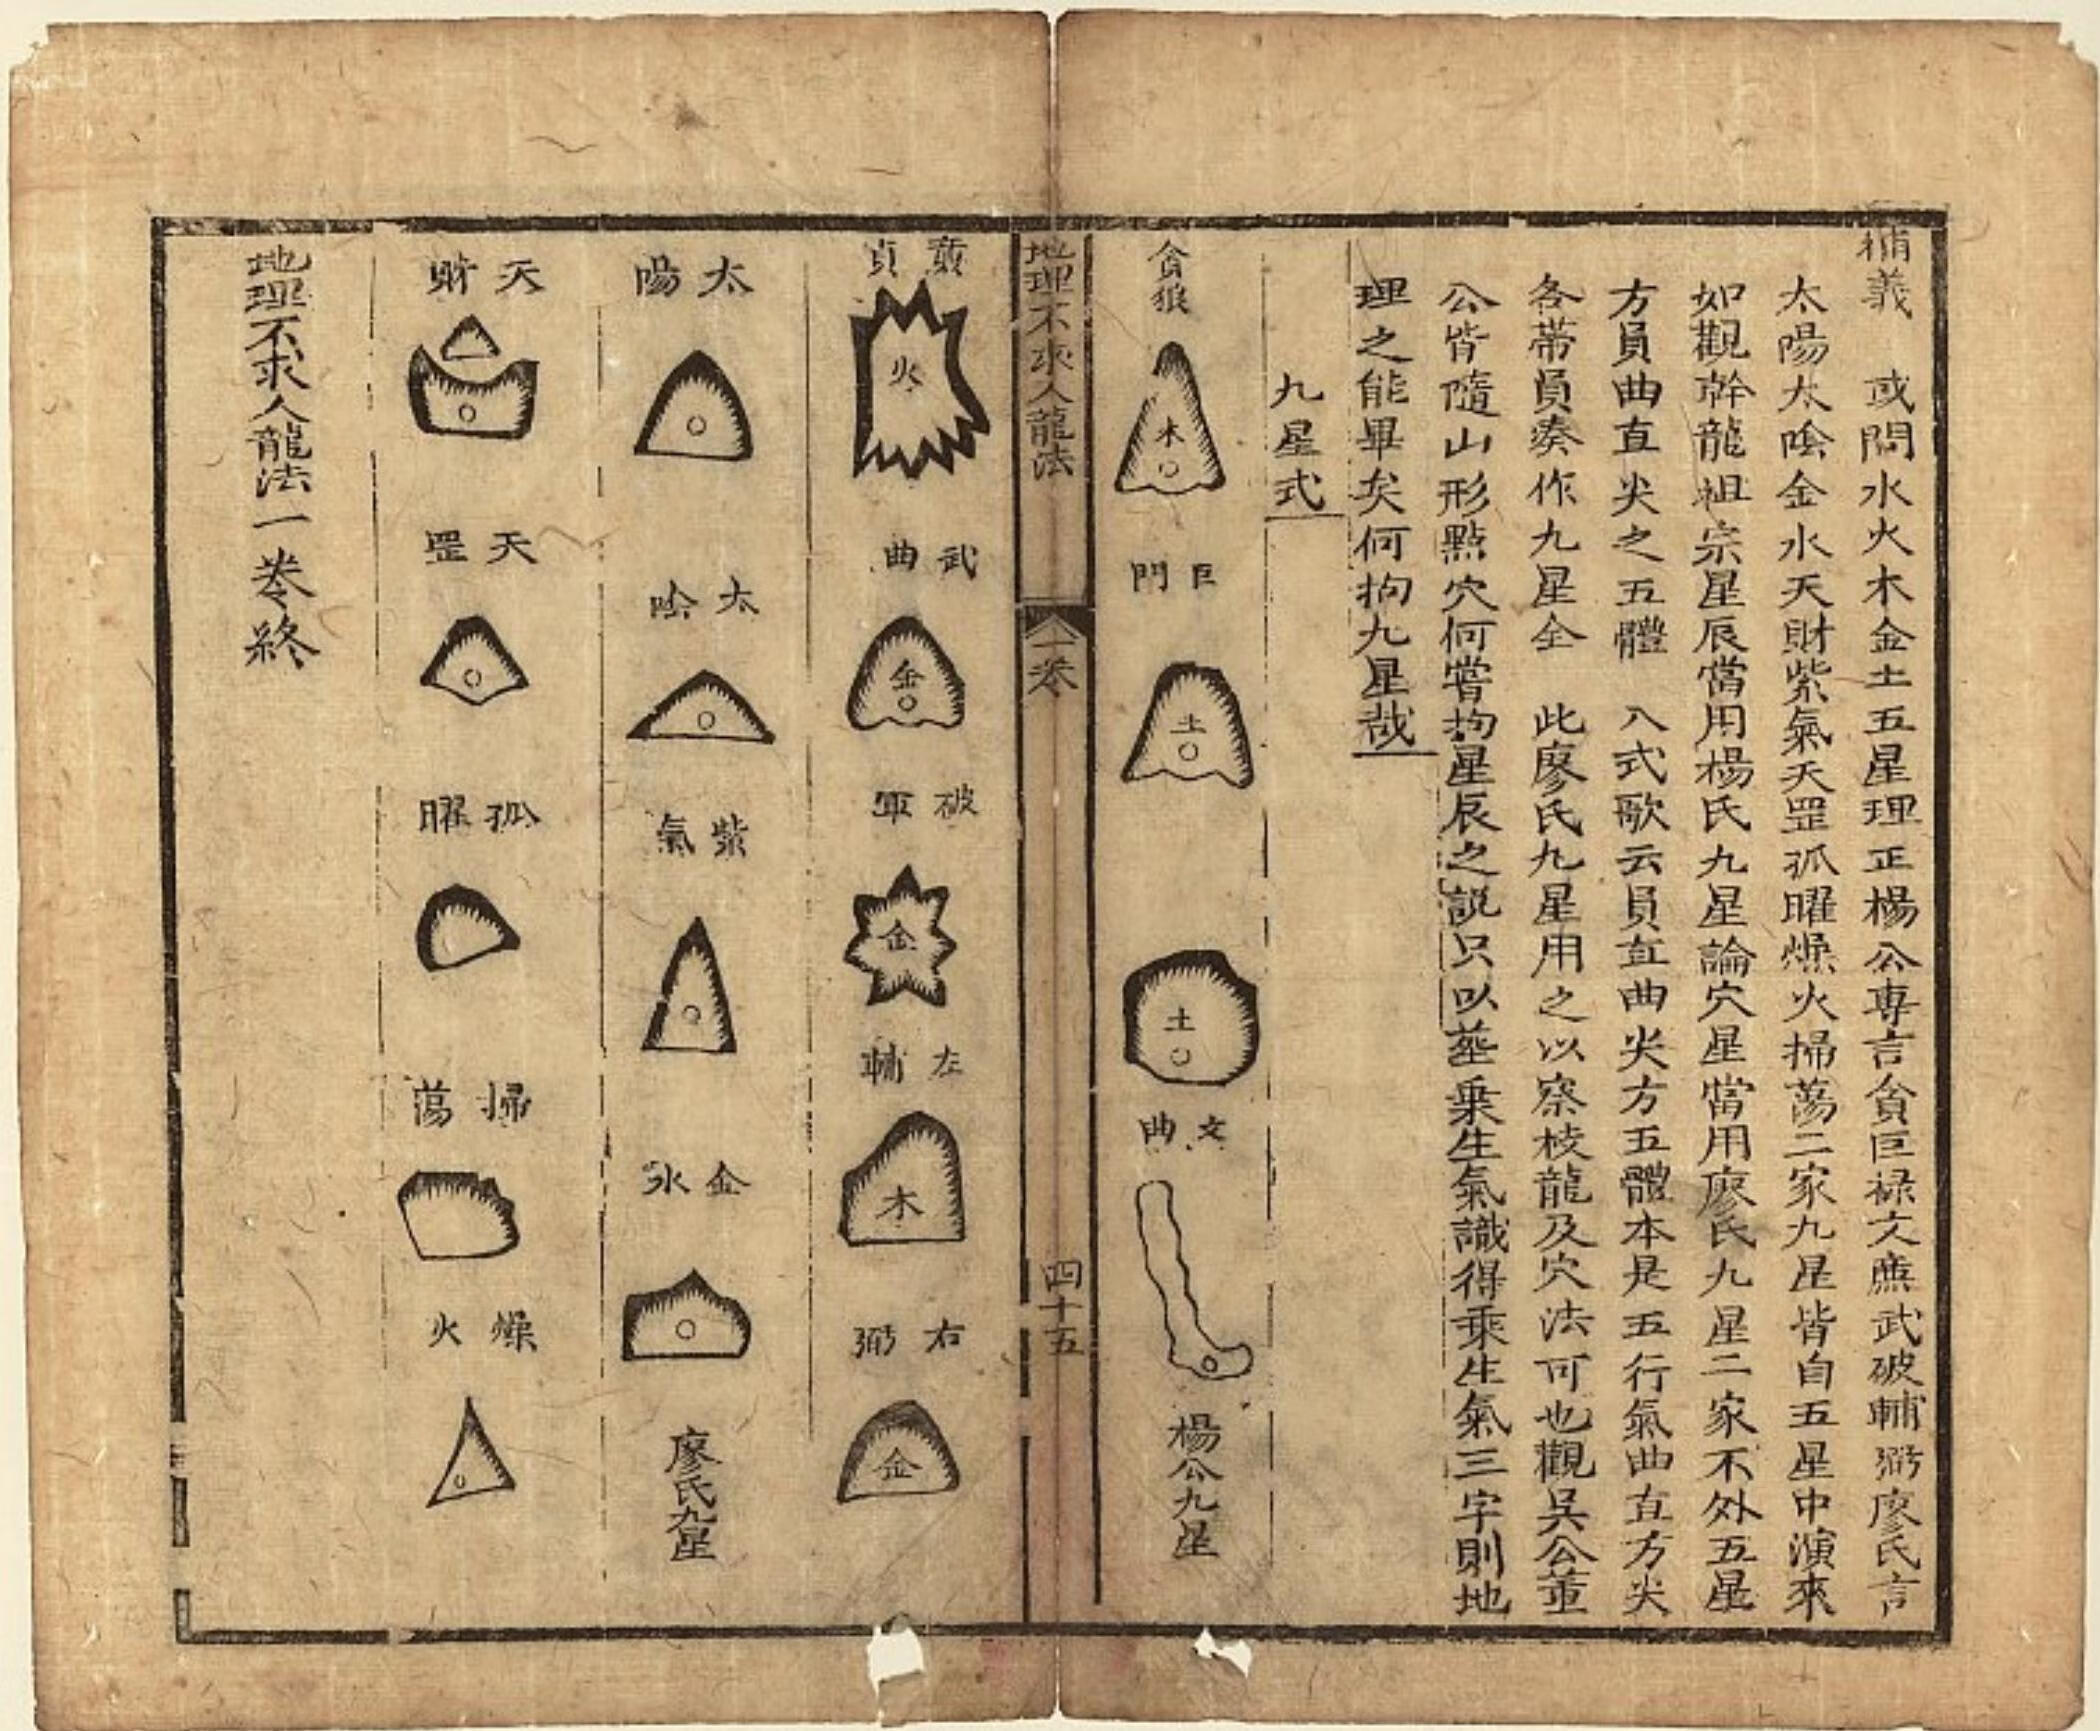 補義　或問水火木金土五星理正楊公專言貪巨祿文廉武破輔弼廖氏言
太陽太陰金水天財紫氣天罡孤曜燥火掃蕩二家九星皆自五星中演來
如觀幹龍祖宗星辰當用楊氏九星論穴星當用廖氏九星二家不外五星
方員曲直尖之五體　入式歌云員直曲尖方五體本是五行氣曲直方尖
各帶員湊作九星全　此廖氏九星用之以察枝龍及穴法可也觀吳公董
公皆隨山形點穴何嘗拘星辰之説只以莖乗生氣識得乗生氣三字則地
理之能畢矣何拘九星哉
九星式
貪狼
木
巨門
土
土
文曲
楊公九星
地理不求人龍法
一卷
四十五
廉貞
火
武曲
金
破軍
金
左輔
木
右弼
金
太陽
太陰
紫氣
金水
廖氏九星
天財
天罡
孤曜
掃蕩
燥火
地理不求人龍法一卷終